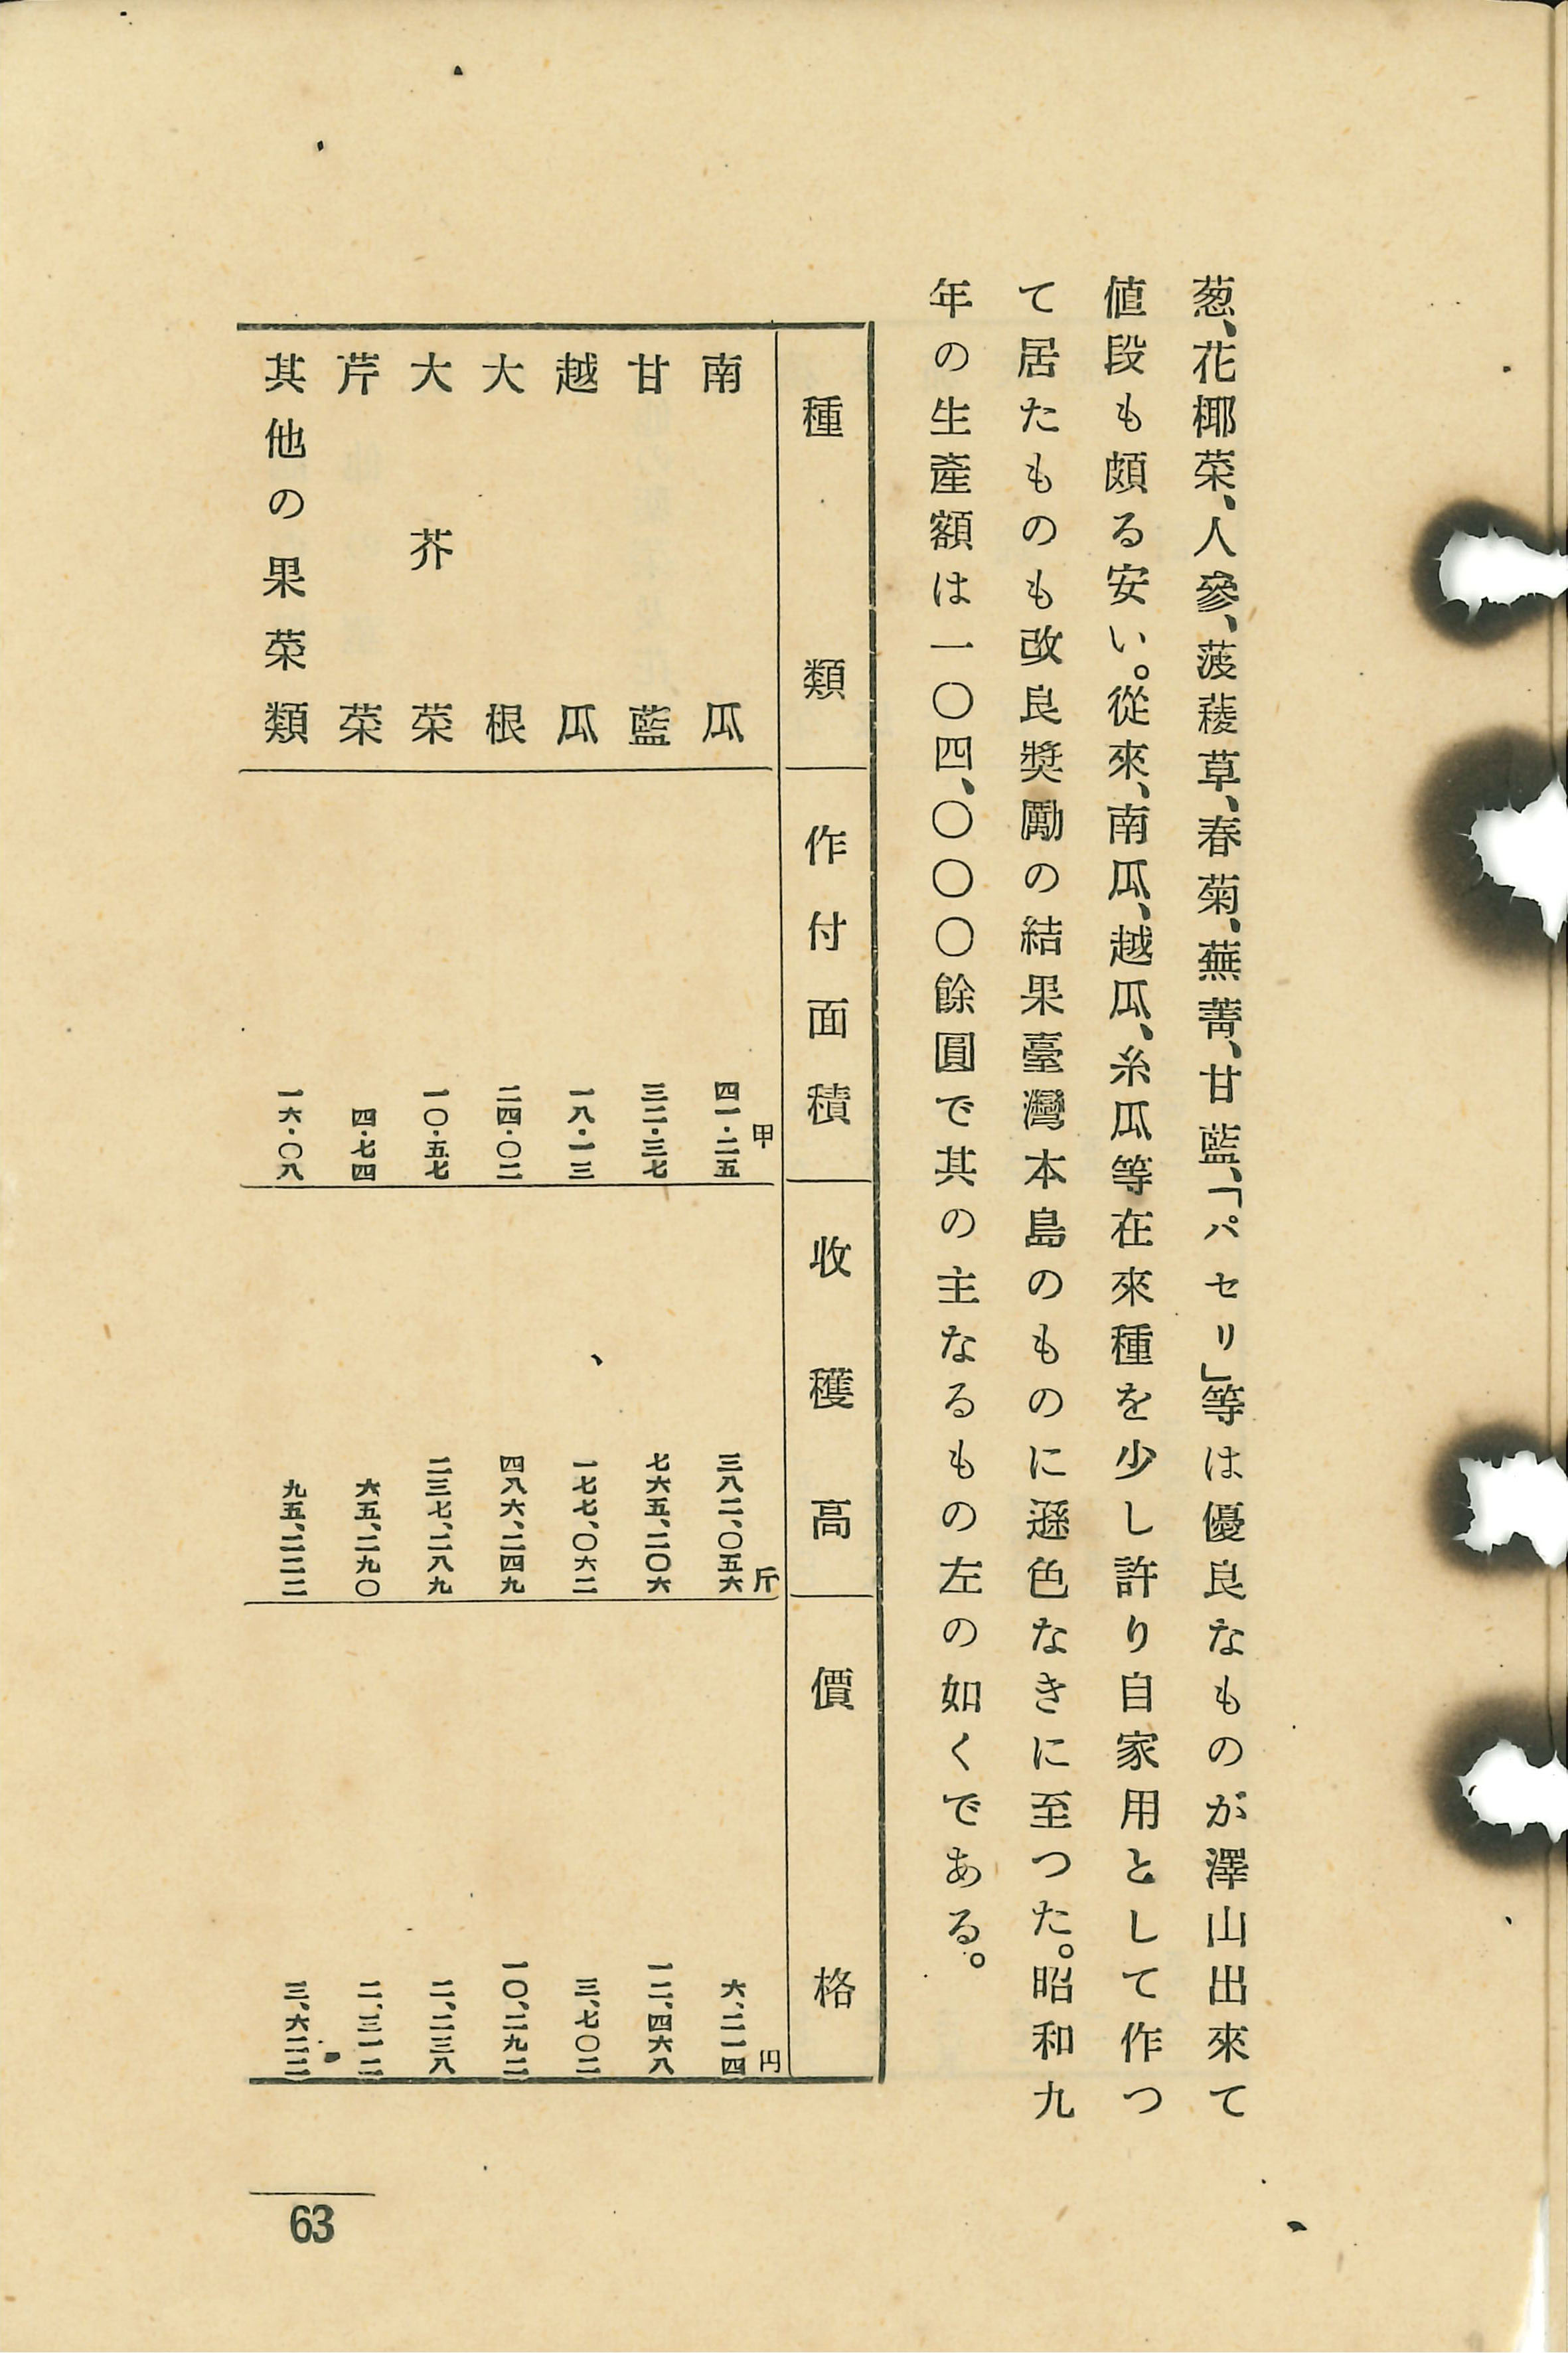 葱、花椰菜、人參、菠薐草、春菊、蕪菁、甘藍、「パセリ」等は優良なものが澤山出來て
値段も頗る安い。從來、南瓜、越瓜、糸瓜等在來種を少し許り自家用として作つ
て居たものも改良獎勵の結果臺灣本島のものに遜色なきに至つた。昭和九
年の生產額は一〇四、〇〇〇餘圓で其の主なるもの左の如くである。
種類 作付面積 收穫高 價格
甲 斤 円
南瓜 四一・二五 三八二、〇五六 六、二一四
甘藍 三二・三七 七六五、二〇六 一二、四六八
越瓜 一八・一三 一七七、〇六二 三、七〇二
大根 二四・〇二 四八六、二四九 一〇、二九二
大芥菜 一〇・五七 二三七、二八九 二、二三八
芹菜 四・七四 六五、二九〇 二、三一二
其他の果菜類 一六・〇八 九五、二二二 三、六二二
63